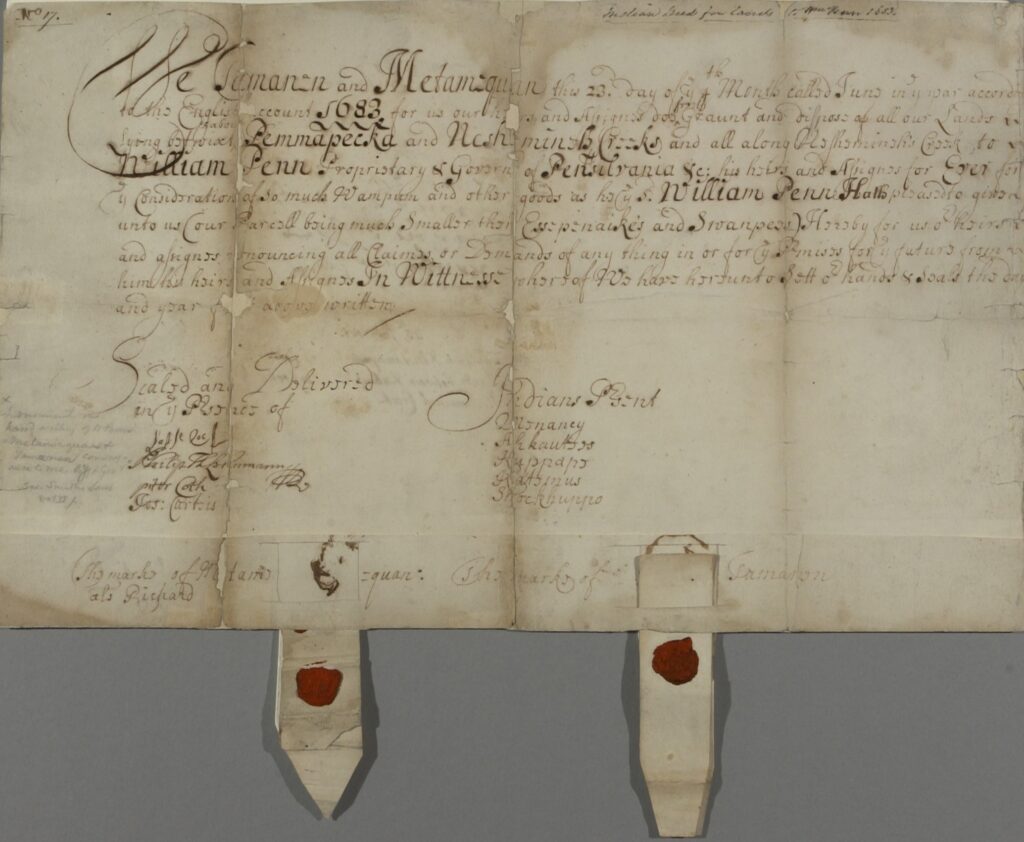 No 17.
Indian Deed for Lands to Wm Penn 1683
We Tamanen and Metamequan this 23. day of ye 4th Month called June in ye year accord
to the English account 1683 for us our and Assignes doe graunt and dispose of all our Lands
lying betwixt Pemmapecka and Neshminsh Creeks and all along Neshminsh Creek to
William Penn Proprietary & Govern of Pensilvania &c: his heirs and Assignes for Ever for
ye Consideration of so much Wampum and other goods as he ye sd. William Penn Hath pleased to give
unto us (Our Parcell being much Smaller then Essepenaikes and Swanpees) Hereby for us or heirs
and assignes renouncing all Claimes or Demands of any thing in or for ye Premises for ye future from
him his heirs and Assignes In Wittnesse whereof We have hereunto Sett or hands & Seals the
and year above written
Sealed and Delivered
in ye Presence of
Indians Psent
Philip Th Lehnmann
Menancy
Ahkauttes
Kuppape
Kathemus
Shockhuppo
The marke of Metamequan:
als Richard
The marke of Tamanen